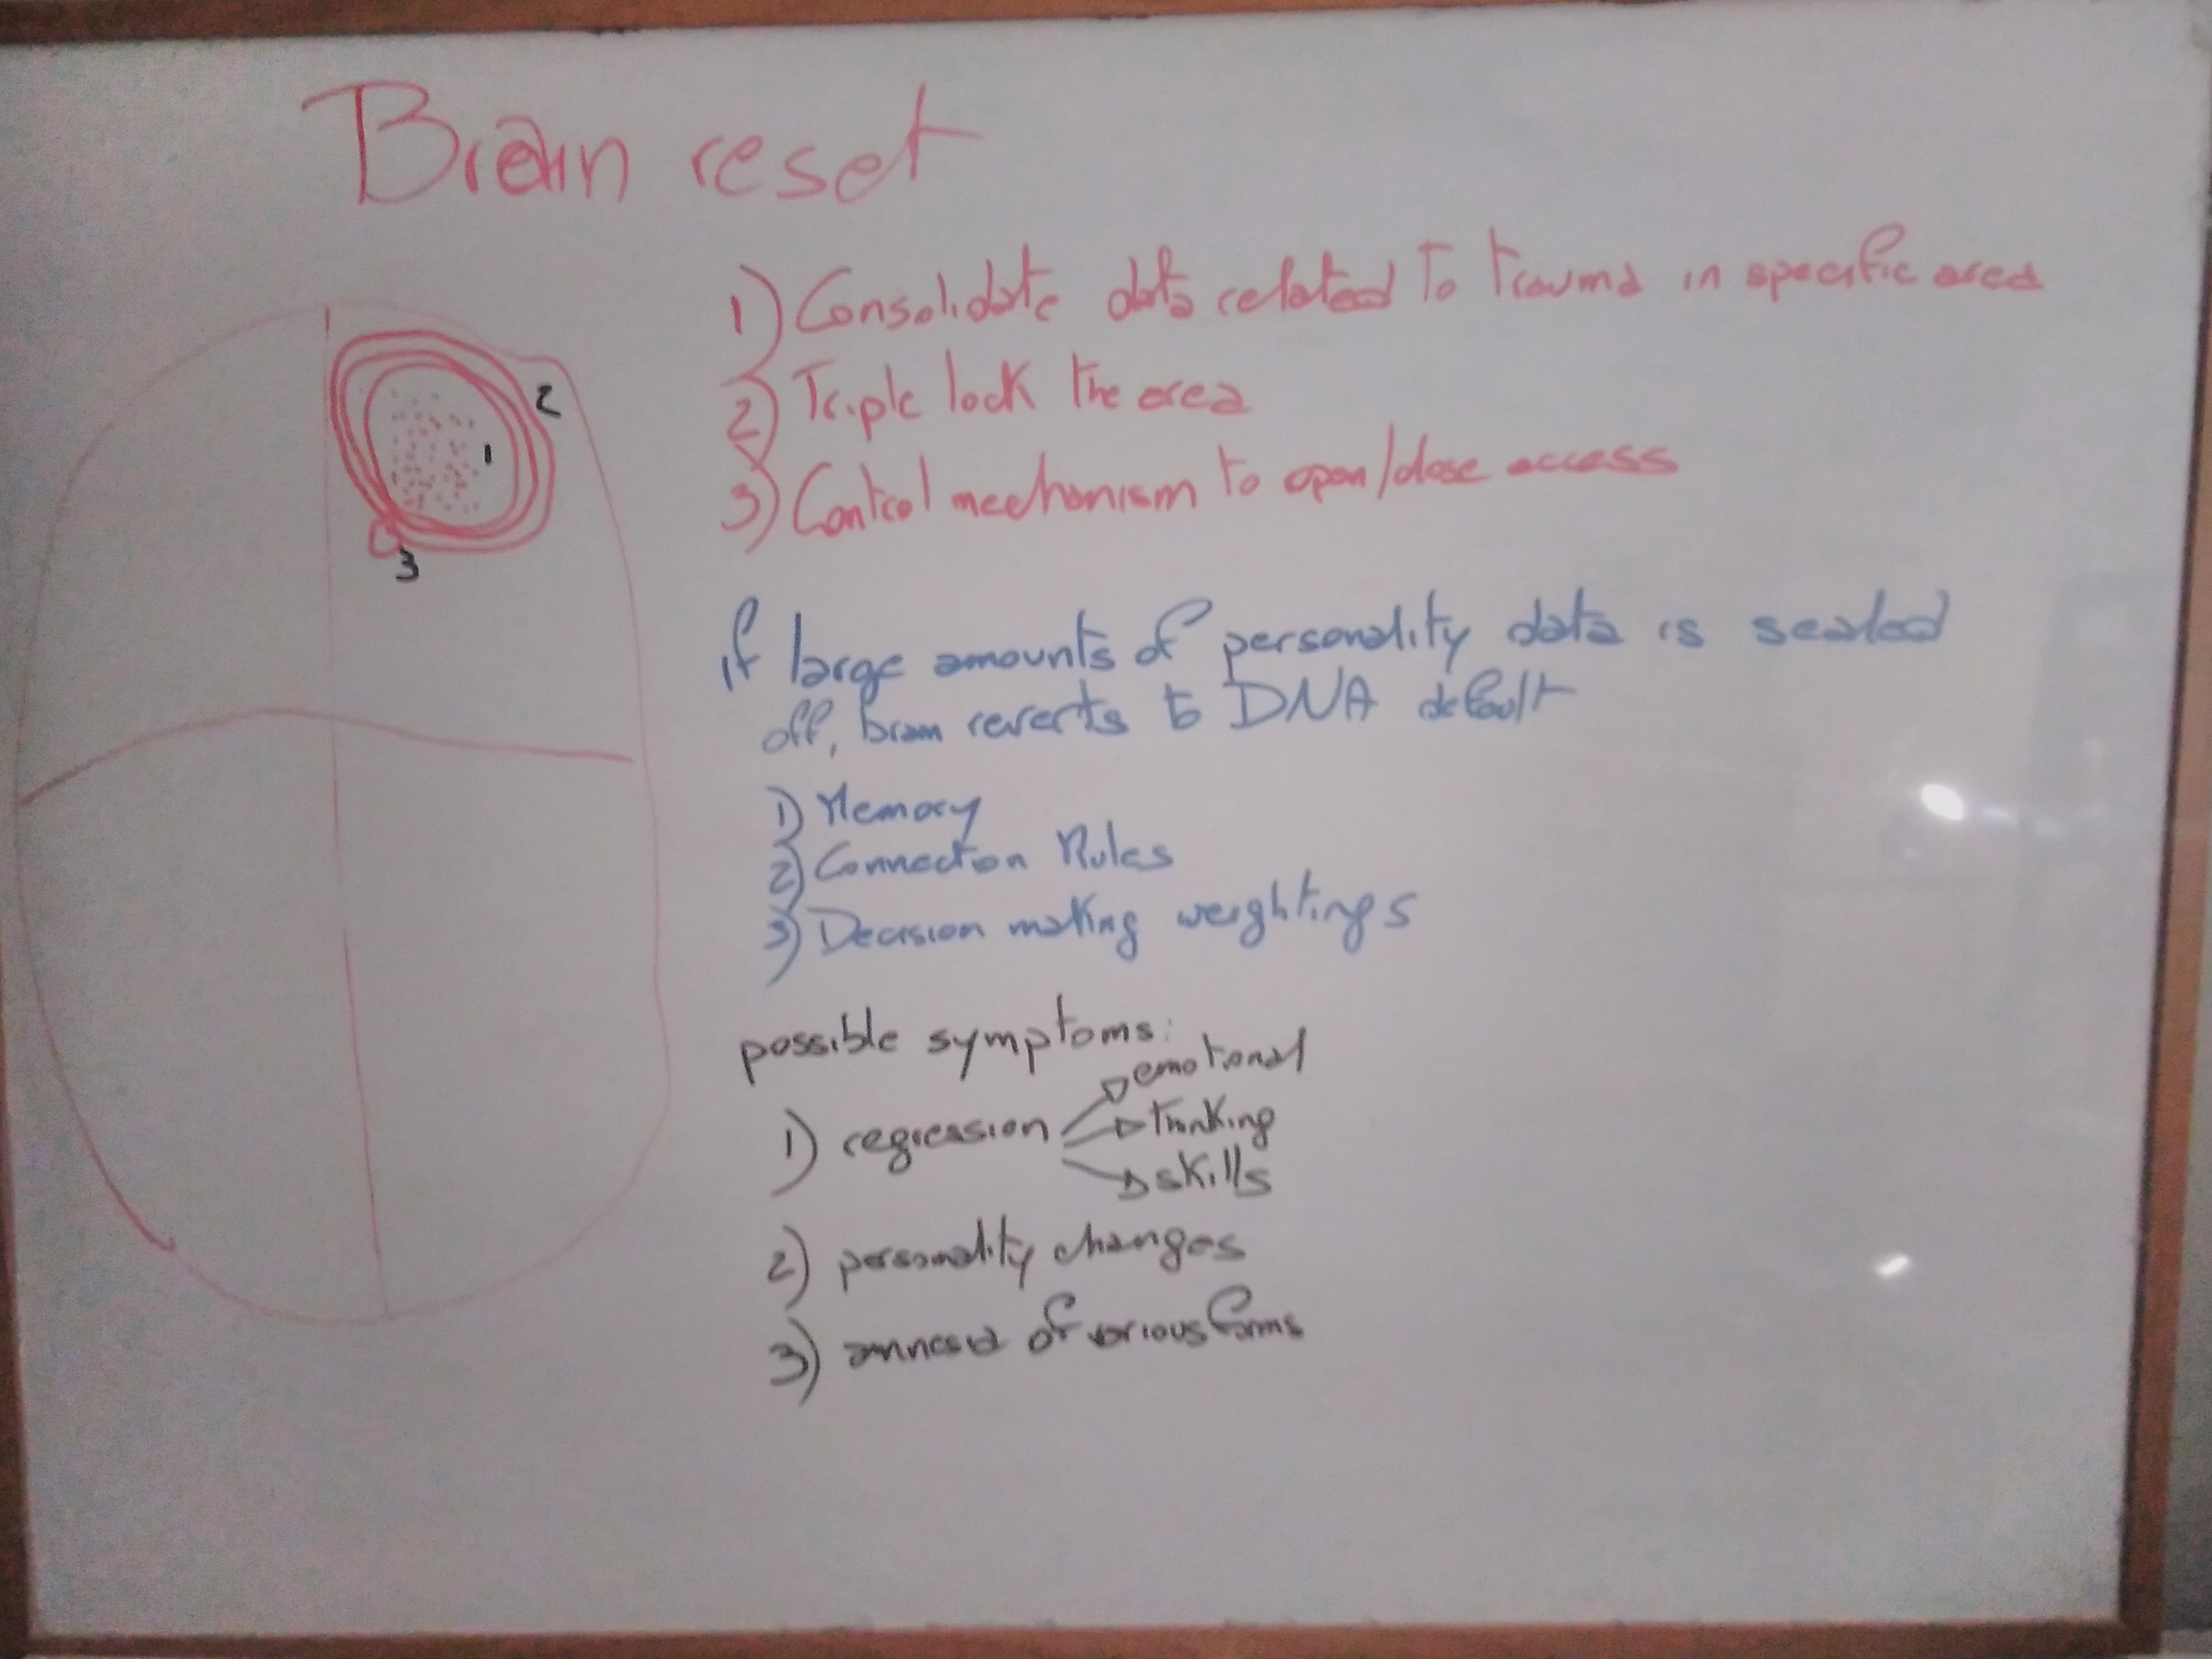 Brain reset
1) Consolidate data related to trauma in specific area
2) Triple lock the area
3) Control mechanism to open/close access
2
1
3
if large amounts of personality data is sealed
off, brain reverts to DNA default
1) Memory
2) Connection Rules
3) Decision making weightings
possible symptoms:
emotional
1) regression
thinking
skills
2) personality changes
3) amnesia of various forms